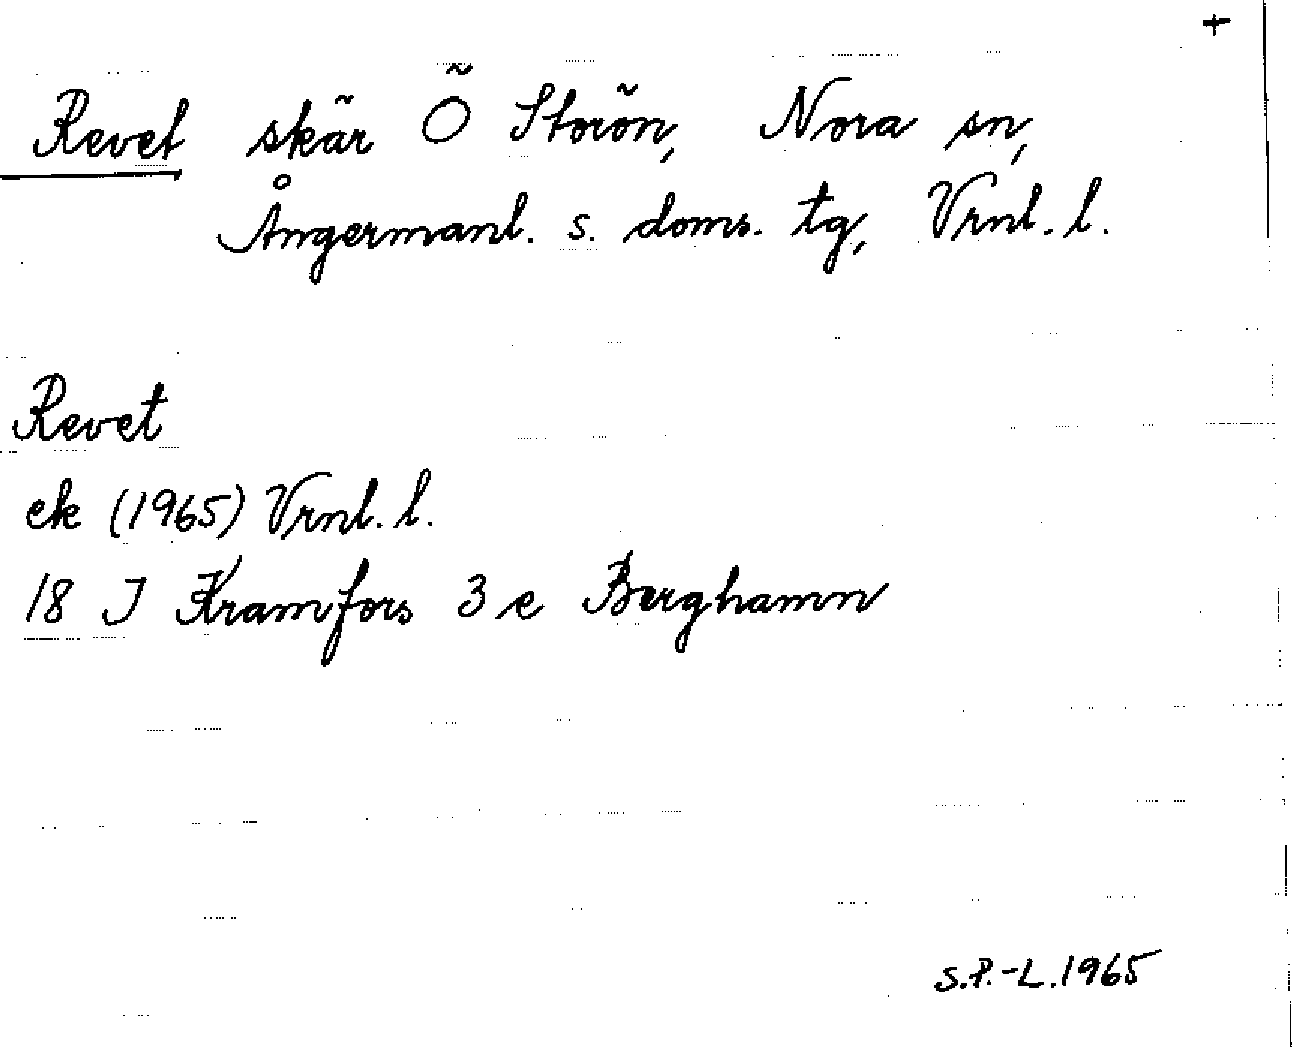 +
Revet skär Ö Storön, Nora sn,
Ångermanl. s. doms. tg, Vrnl. l.
Revet
ek (1965) Vrnl. l.
18 J Kramfors 3 e Berghamn
S.P.-L. 1965